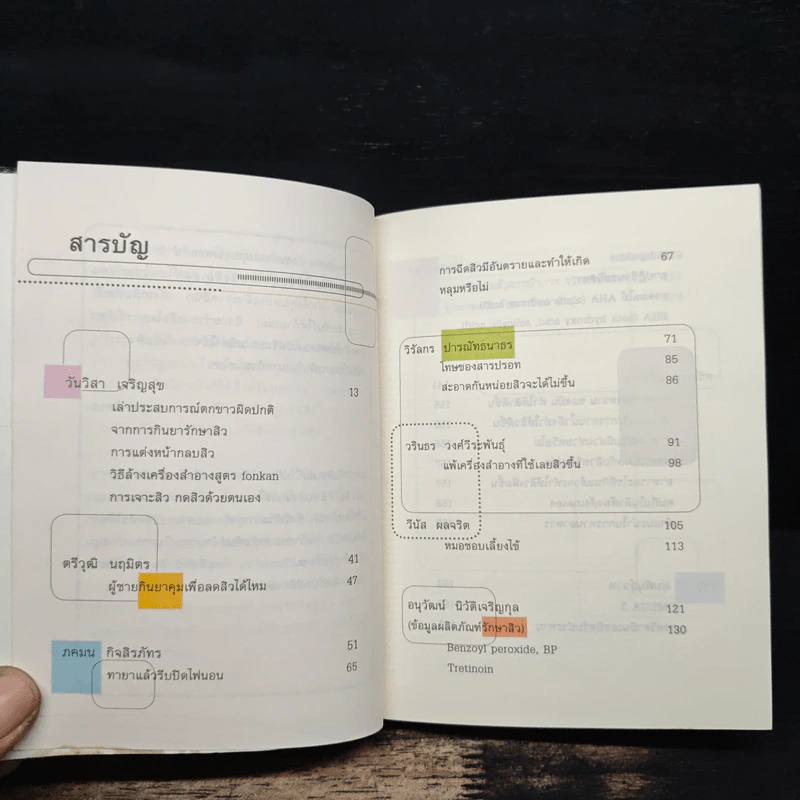 สารบัญ
วันวิสา เจริญสุข 13
เล่าประสบการณ์ตกขาวผิดปกติ
จากการกินยารักษาสิว
การแต่งหน้ากลบสิว
วิธีล้างเครื่องสำอางสูตร fonkan
การเจาะสิว กดสิวด้วยตนเอง
ตรีวุฒิ นฤมิตร 41
ผู้ชายกินยาคุมเพื่อลดสิวได้ไหม 47
ภคมน กิจสิรภัทร 51
ทายาแล้วรีบปิดไฟนอน 65
การฉีดสิวมีอันตรายและทำให้เกิด 67
หลุมหรือไม่
วิรัลกร ปารณัทธนาธร 71
โทษของสารปรอท 85
สะอาดกันหน่อยสิวจะได้ไม่ขึ้น 86
วรินธร วงศ์วีระพันธุ์ 91
แพ้เครื่องสำอางที่ใช้เลยสิวขึ้น 98
วีนัส ผลจริต 105
หมอชอบเลี้ยงไข้ 113
อนุวัฒน์ นิวัติเจริญกุล 121
(ข้อมูลผลิตภัณฑ์รักษาสิว) 130
Benzoyl peroxide, BP
Tretinoin